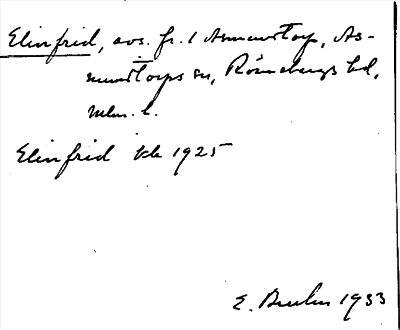 Elinfrid, avs. fr. 1 Asmundtorp, As-
mundtorps sn, Rönnebergs hd,
Mlm. l.
Elinfrid kk 1925
E. 1933